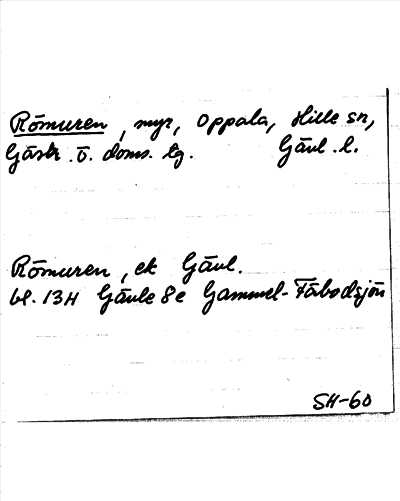 Römuren, myr, Oppala, Hille sn,
Gästr. ö. doms. tg. Gävl. l.
Römuren, ek Gävl.
bl. 13H Gävle 8e Gammel-Fäbodsjön
SH-60